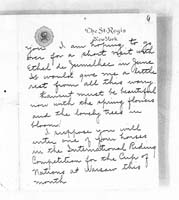 The St. Regis
New York
you I am hoping to go
over for a short rest with
Ethel de in June
It would give me a little
rest from all this worry
must be beautiful
now with the spring flowers
and the lovely trees in
bloom
I suppose you will
enter one of your horses
in the International Riding
Competition for the Cup of
Nations at Warsaw this
month